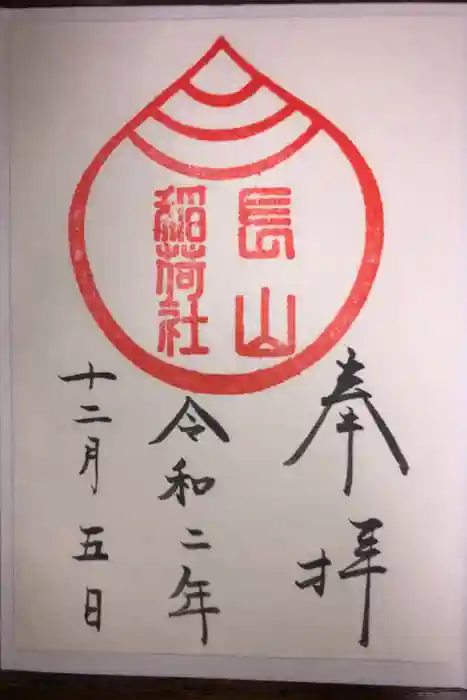 奉拝
長山
稲荷社
令和二年
十二月五日